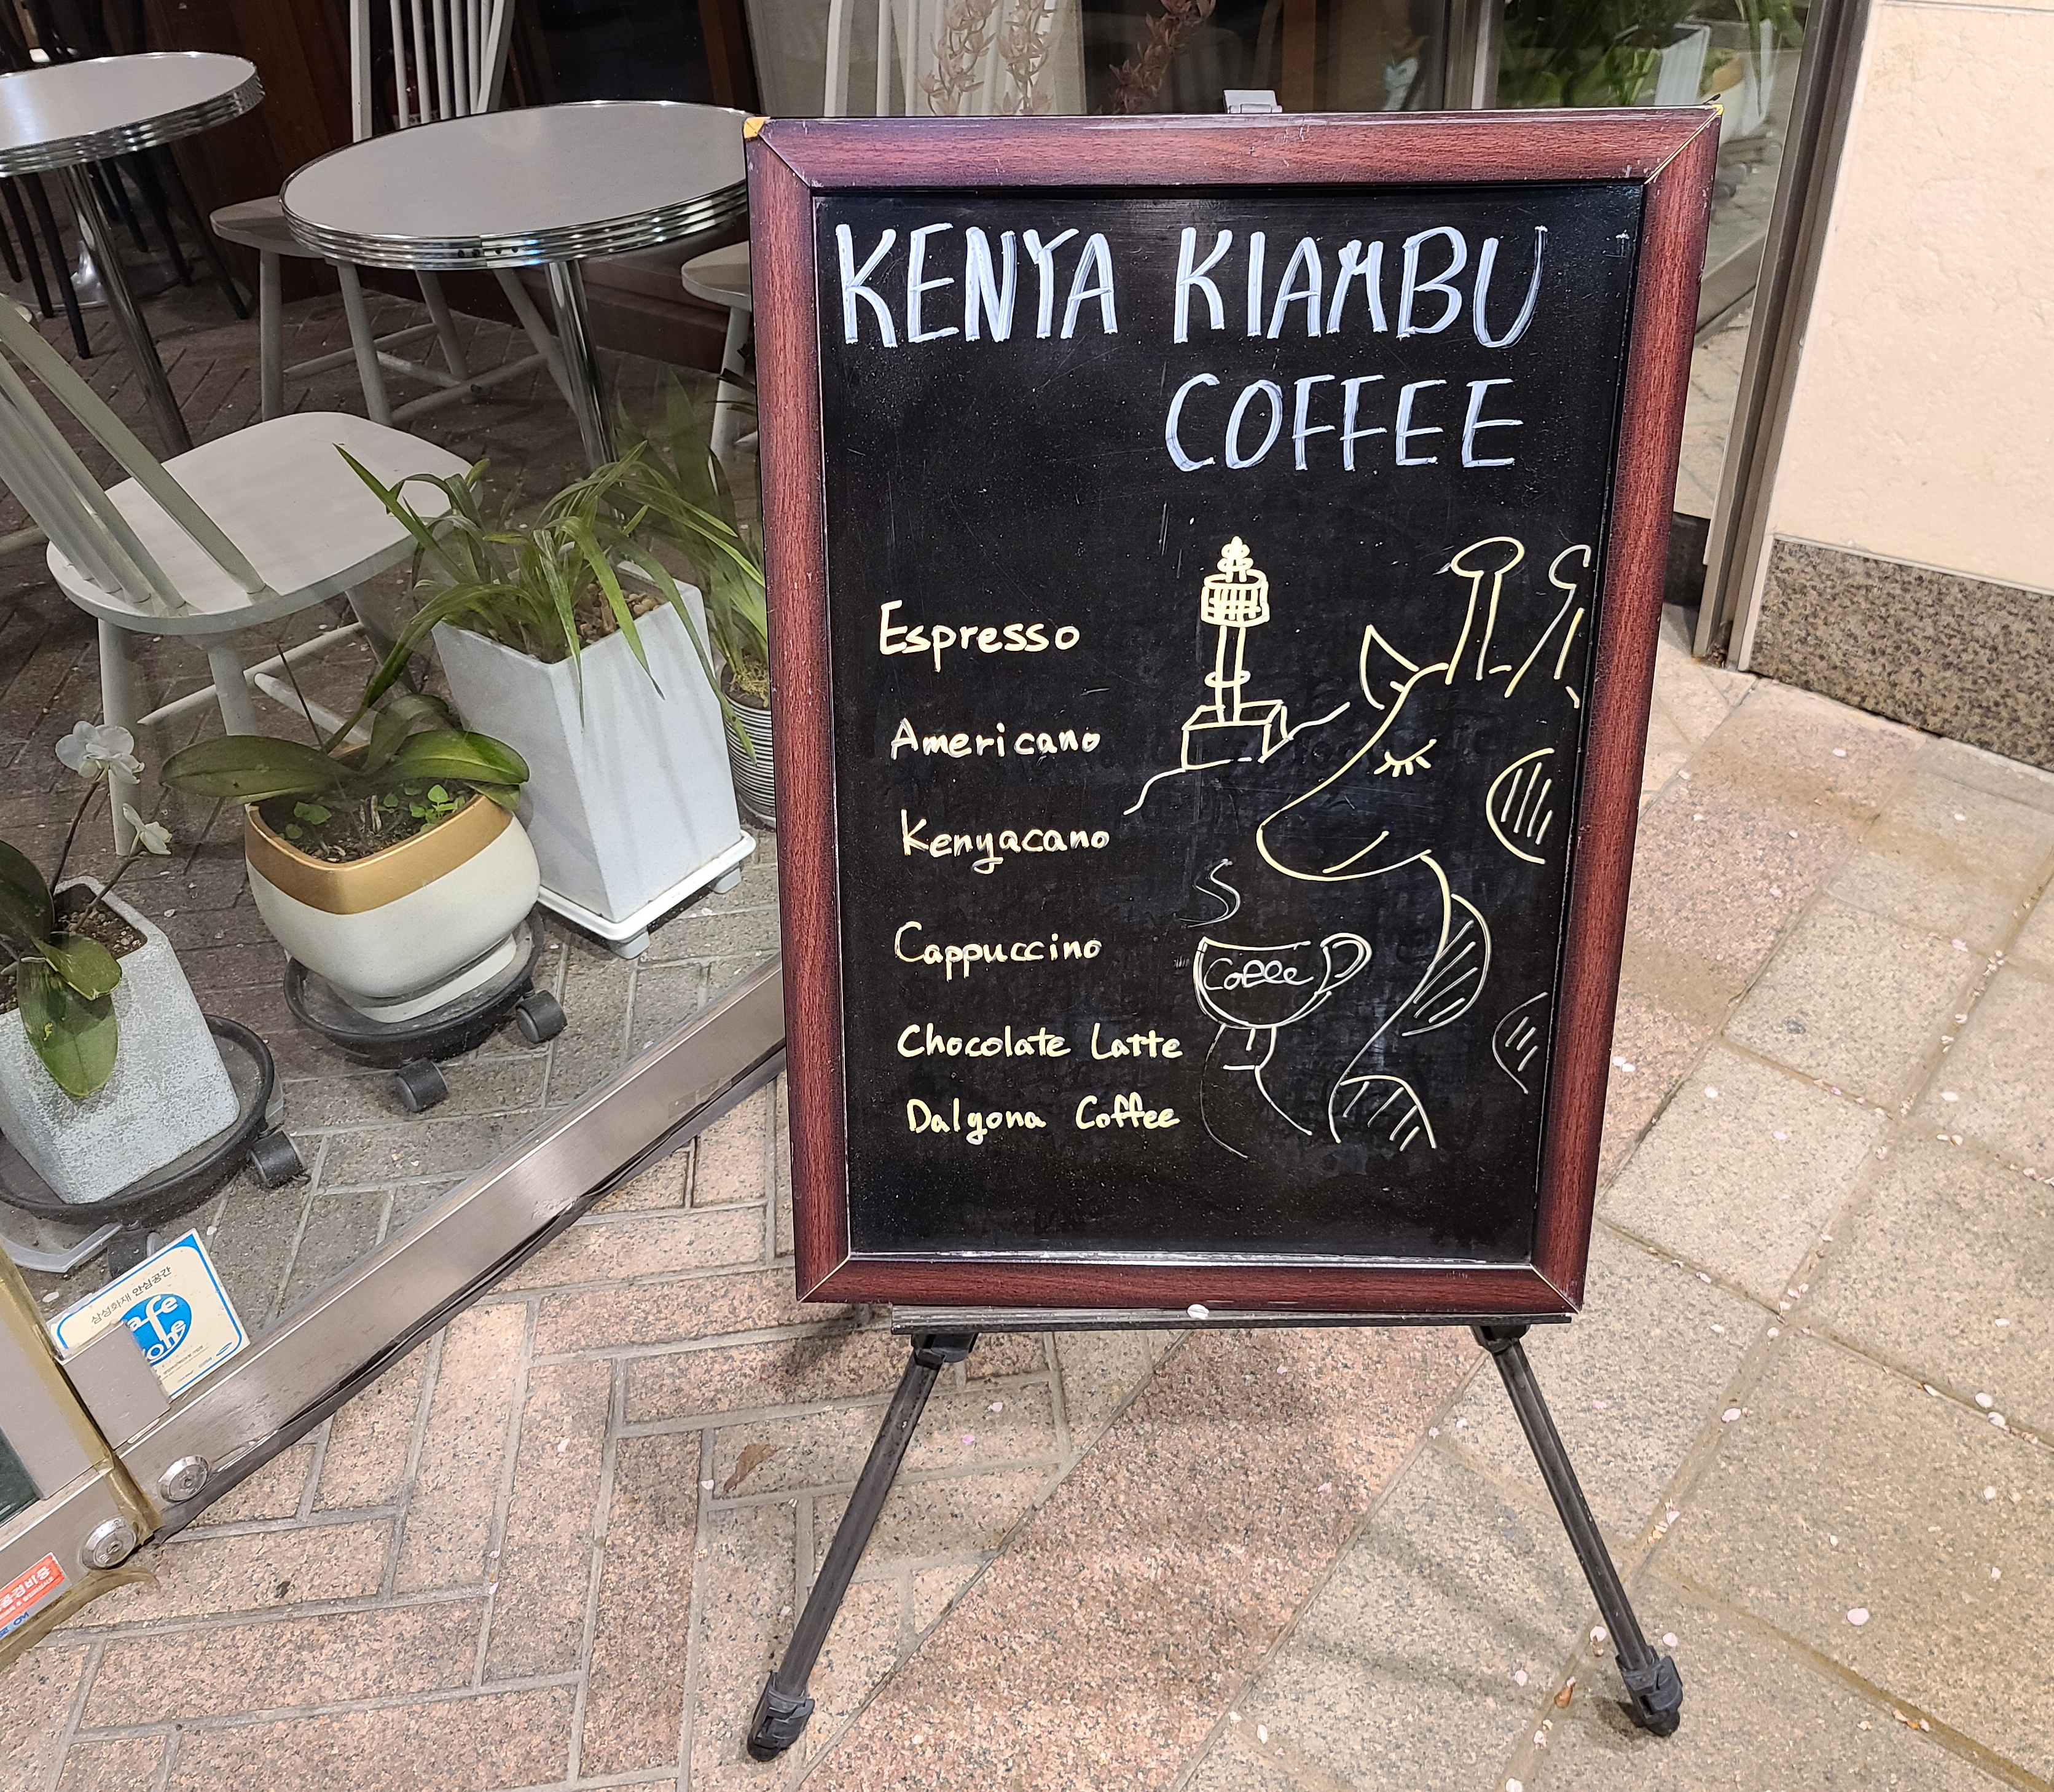 KENYA KIAMBU
COFFEE
Espresso
Americano
Kenyacano
Cappuccino
Chocolate Latte
Dalgona Coffee
Coffee
삼성화재 안심공간